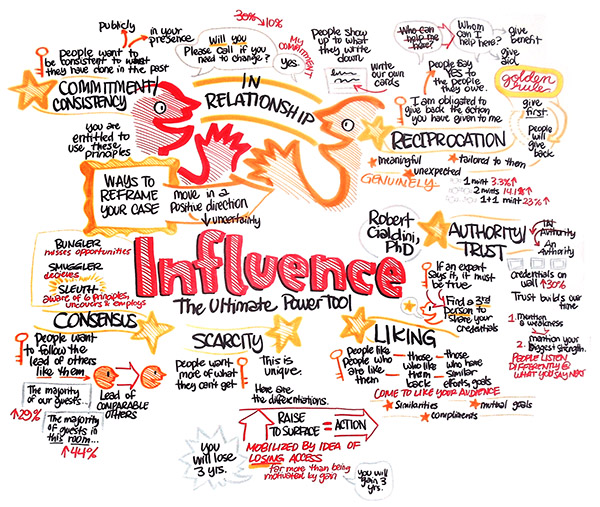 publicly
in your
presence
people want to
be consistent to what
they have done in the past
COMMITMENT/
CONSISTENCY
30% → 10%
Will you
Please call if you
need to change?
yes.
MY
COMMITMENT
People show
up to
what they
write
down
Write
our own
cards
IN
RELATIONSHIP
Who can
help me
here?
Whom
can I
help here?
give
benefit
give
aid
golden
rule
give
first.
People
will
give
back
People say
YES to
the people
they owe.
I am obligated to
give back the action
you have given to me
RECIPROCATION
meaningful
tailored to them
unexpected
GENUINELY
1 mint 3.3%↑
2 mints 14.1%↑
1+1 mint 23%↑
you are
entitled to
use these
principles
WAYS TO
REFRAME
YOUR CASE
move in a
positive direction
↓ uncertainty
BUNGLER
misses opportunities
SMUGGLER
deceives
SLEUTH
aware of 6 principles,
uncovers & employs
Influence
The Ultimate Power Tool
Robert
Cialdini,
PhD
AUTHORITY/
TRUST
IN
Authority
An
Authority
If an expert
says it, it must
be true
Find a 3rd
person to
share your
credentials
credentials on
wall ↑30%
Trust builds our
time
1. mention
a weakness
2. mention your
biggest strength.
PEOPLE LISTEN
DIFFERENTLY @
WHAT YOU SAY NEXT
CONSENSUS
People want
to follow the
lead of others
like them
The majority
of our guests...
↑29%
The majority
of guests in
this room...
↑44%
Lead of
COMPARABLE
OTHERS
SCARCITY
People want
more of what
they can't get
This is
unique.
Here are
the differentiations.
RAISE
TO SURFACE = ACTION
MOBILIZED BY IDEA OF
LOSING ACCESS
far more than being
motivated by gain
you
will lose
3 yrs.
you will
gain 3
yrs.
LIKING
People like
people who
are like
them
those
who like
them
back
those
who have
similar
efforts, goals
COME TO LIKE YOUR AUDIENCE
Similarities
mutual goals
compliments